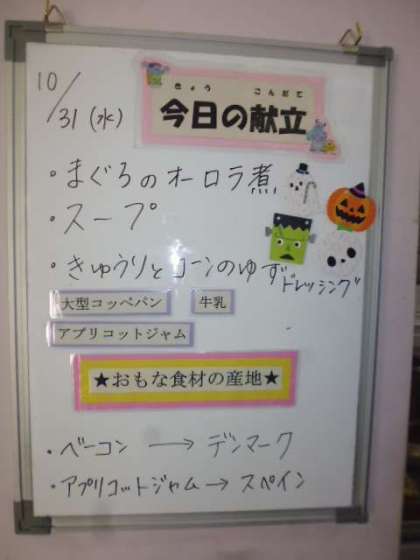 10/31(水)
きょう こんだて
今日の献立
・まぐろのオーロラ煮
・スープ
・きゅうりとコーンのゆずドレッシング
大型コッペパン 牛乳
アプリコットジャム
★おもな食材の産地★
・ベーコン → デンマーク
・アプリコットジャム→スペイン